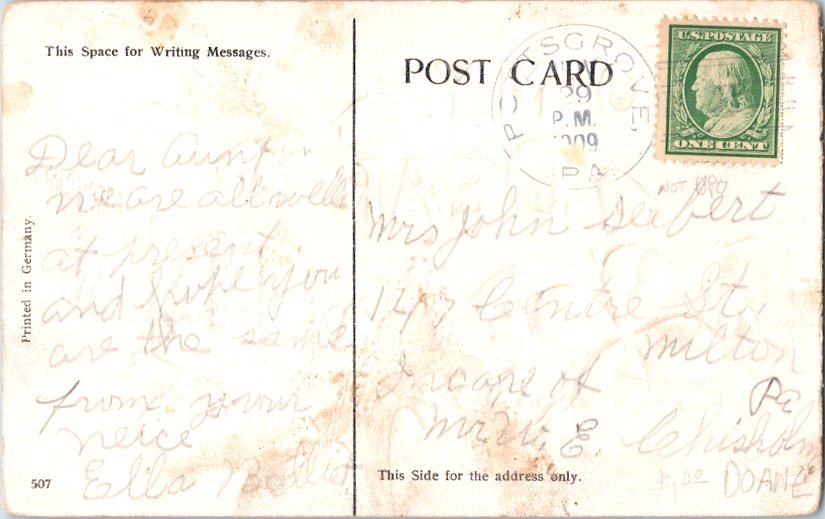 This Space for Writing Messages.
Dear Aunt
we are all well
at present
and hope you
are the same
from your
neice
Ella
Printed in Germany.
507
POST CARD
POTTSGROVE,
29
P.M.
1909
PA
U.S. POSTAGE
ONE CENT
NOT DPO
Mrs John Seibert
147 Centre St.
Milton
Pa
In care of
Mr W. E. Chisholm
This Side for the address only.
DOANE